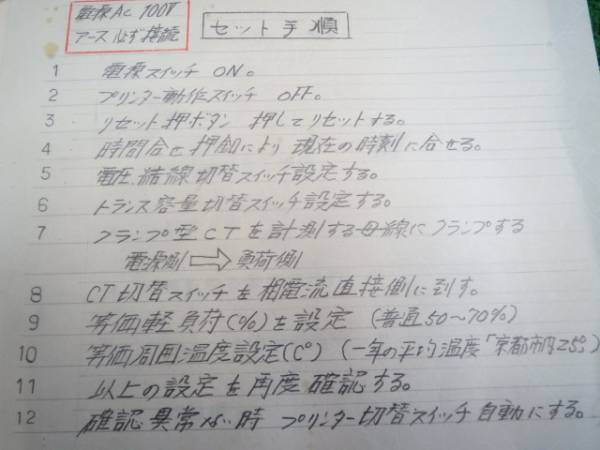 電源AC 100V
アース 必ず接続
セット手順
1 電源スイッチ ON。
2 プリンター動作スイッチ OFF。
3 リセット押ボタン 押してリセットする。
4 時間合せ押釦により 現在の時刻に合せる。
5 電圧、結線切替スイッチ設定する。
6 トランス容量切替スイッチ設定する。
7 クランプ型CTを計測する母線にクランプする
電源側⇨負荷側
8 CT切替スイッチを相電流直接側に到す。
9 等価軽負荷(%)を設定 (普通50～70%)
10 等価周囲温度設定(C°) (一年の平均温度「京都市内25°)
11 以上の設定を再度確認する。
12 確認異常ない時 プリンター切替スイッチ自動にする。